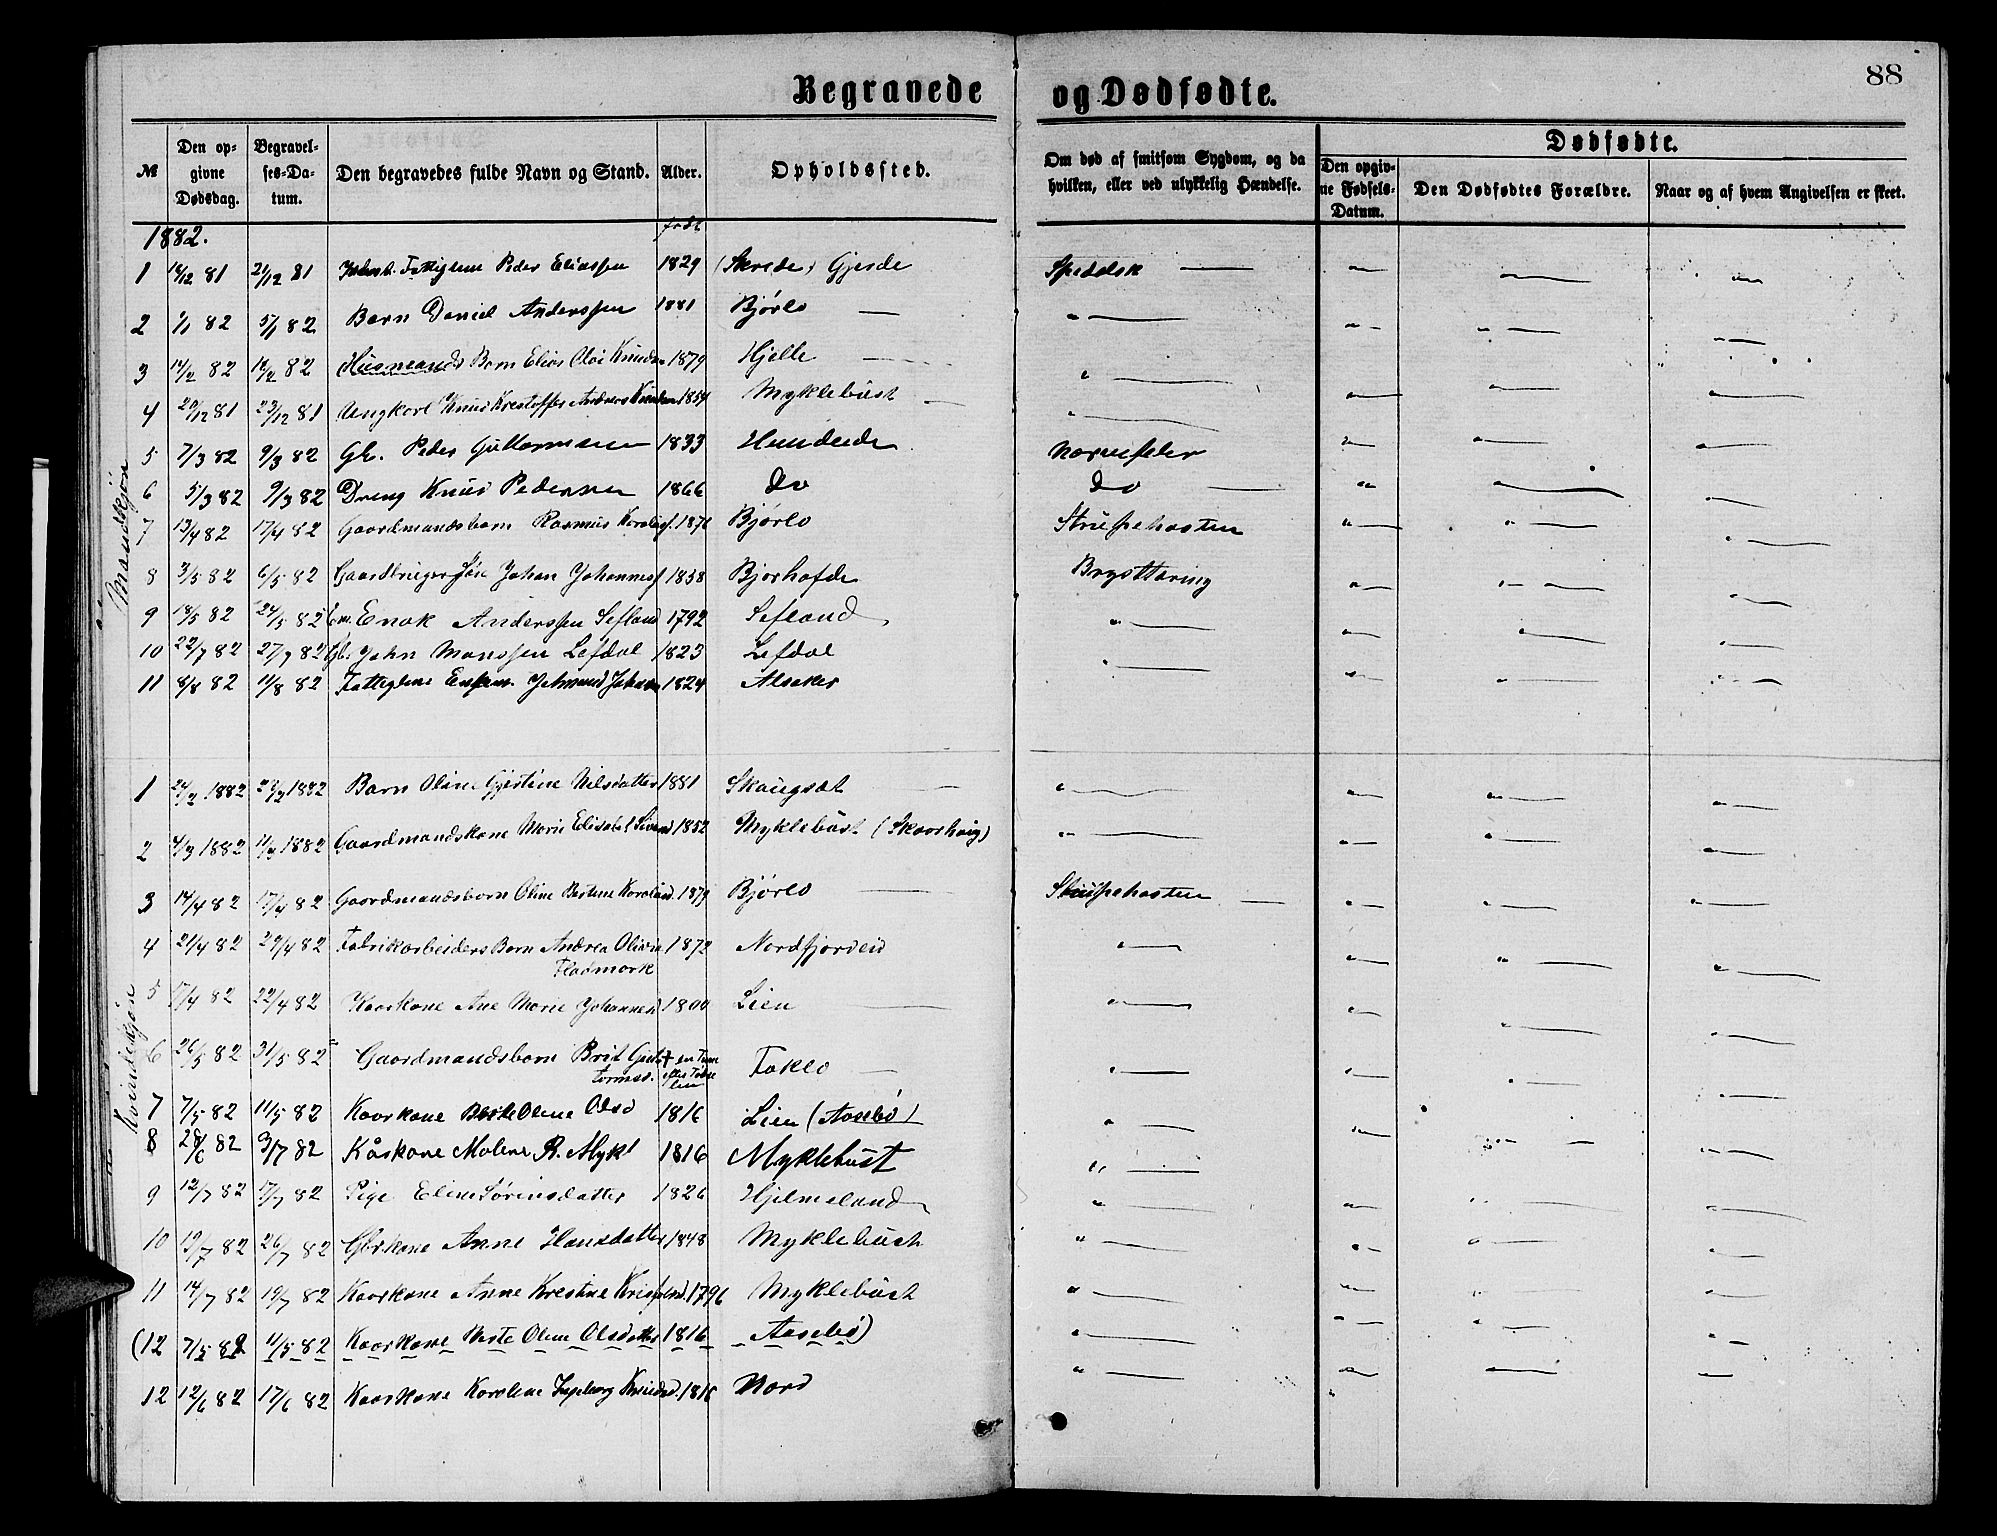 88
Begravede og Dødfødte.
№ Den opgivne Dødsdag. Begravelses-Datum. Den begravedes fulde Navn og Stand. Alder. Opholdssted. Om død af smitsom Sygdom, og da hvilken, eller ved ulykkelig Hændelse. Dødfødte. Den opgivne Fødsels-Datum. Den Dødfødtes Forældre. Naar og af hvem Angivelsen er skeet.
1882. født
Mandkjøn
1 18/12 81 21/12 81 Fattiglem Peder Eliassen 1829 (Skrede) Gjerde Spedalsk
2 1/1 82 5/1 82 Barn Daniel Anderssen 1881 Bjørlo
3 14/2 82 82 Husmands Barn Elias Olai Knudsen 1879 Hjelle
4 20/12 81 23/12 81 Ungkarl Knud Krestoffer Andreas 1854 Myklebust
5 7/3 82 9/3 82 Gb. Peder Guttormsen 1833 Hundeide Nervefeber
6 5/3 82 9/3 82 Dreng Knud Pedersen 1866 do do
7 13/4 82 17/4 82 Gaardmandsbarn Rasmus Karolius. 1876 Bjørlo Strupehosten
8 3/5 82 6/5 82 Gaardbruger Søn Johan Johannesf 1858 Bjorhofde Brysttæring
9 18/5 82 24/5 82 Enok Anderssen Sefland 1792 Sefland
10 22/7 82 27/7 82 Gb. John Monssen Lefdal 1823 Lefdal
11 8/8 82 11/8 82 Fattiglem Enkem. 1824 Alsaker
Kvindekjøn
1 24/2 1882 1882 Barn Oline Gjertine Nilsdatter 1881 Skaugsæt
2 4/3 1882 11/3 1882 Gaardmandskone Marie Elisabet 1852 Myklebust (Skaarhaug)
3 14/4 82 17/4 82 Gaardmandsbarn Oline Bertine Karoliusd. 1879 Bjørlo Strupehosten
4 21/4 82 29/4 82 Fabrikarbeiders Barn Andrea Olivia 1872 Nordfjordeid
Flodmark
5 17/4 82 22/4 82 Kaarkone Ane Marie Johannesd 1800 Lien
6 26/5 82 31/5 82 Gaardmandsbarn Brit Gut- + en Time Foklo
tormsd. efter Fødse
len
7 7/5 82 11/5 82 Kaarkone Berte Oline Olsd 1816 Lien (Aasebø)
8 28/6 82 3/7 82 Kåskone Malene R. Mykl 1816 Myklebust
9 12/7 82 17/7 82 Pige Eline Sørinsdatter 1826 Hjelmeland
10 19/7 82 26/7 82 Gbrkone Anne Hansdatter 1848 Myklebust
11 14/7 82 19/7 82 Kaarkone Anne Krestine 1796 Myklebust
(12 7/5 82 11/5 82 Kaarkone Berte Oline Olsdatter 1816 Aasebø)
12 12/6 82 17/6 82 Kaarkone Karolene Ingeborg Knudsd. 1816 Nord